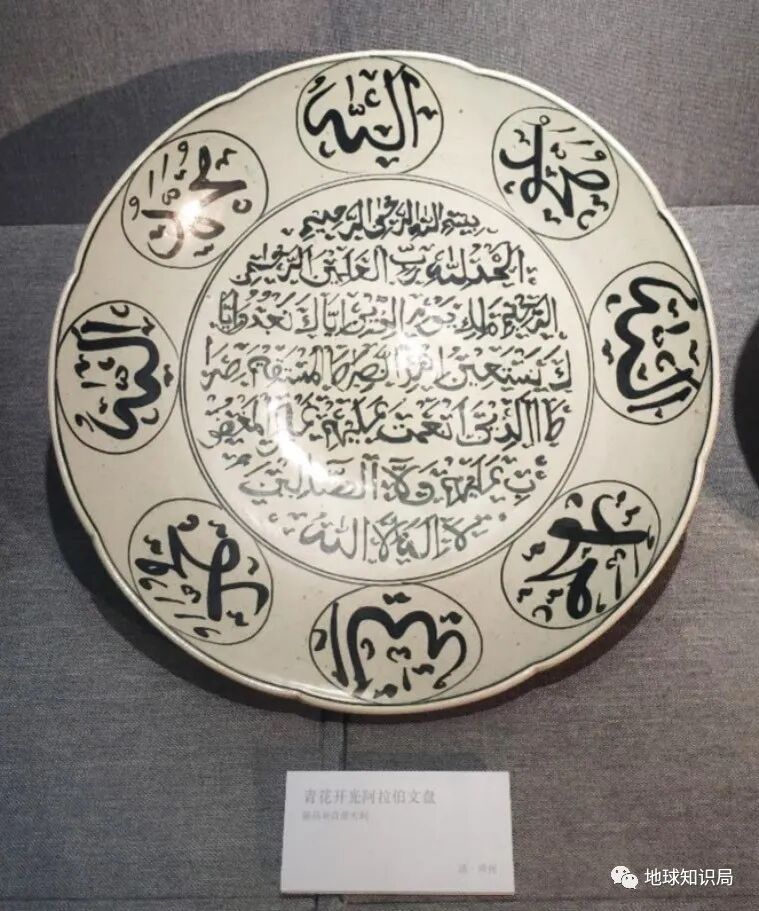 الله
محمد
محمد
بسم الله الرحمن الرحيم
الحمد لله رب العلمين الرحمن
الرحيم ملك يوم الدين اياك نعبد وايا
ك نستعين اهدنا الصراط المستقيم صرا
ط الذين انعمت عليهم غير المغضو
ب عليهم ولا الضالين
الله
الله
محمد
محمد
الله
青花开光阿拉伯文盘
地球知识局